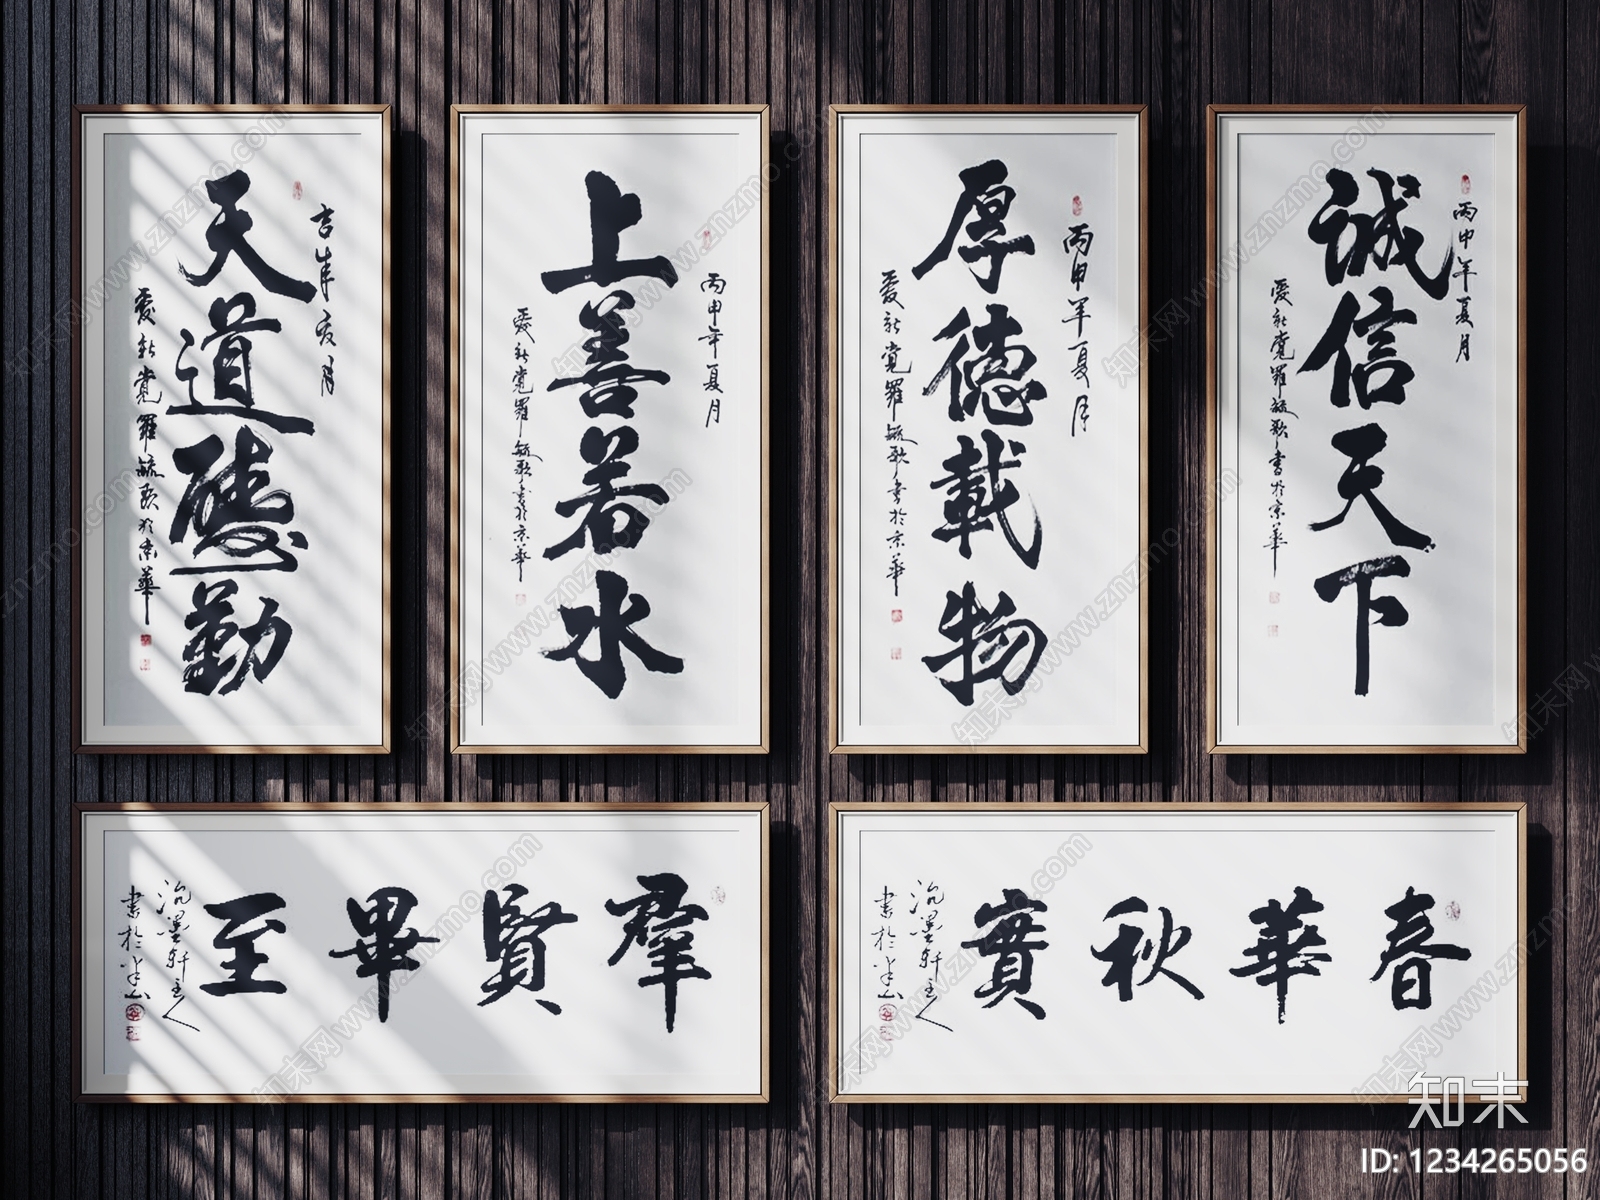 天道酬勤
愛新覺羅毓歌於京華
丙申年夏月
上善若水
愛新覺羅毓歌書於京華
丙申年夏月
厚德載物
愛新覺羅毓歌書於京華
丙申年夏月
誠信天下
愛新覺羅毓歌書於京華
羣賢畢至
沉墨轩主人
書於
春華秋實
沉墨轩主人
書於
知末网www.znzmo.com
知末
ID: 1234265056